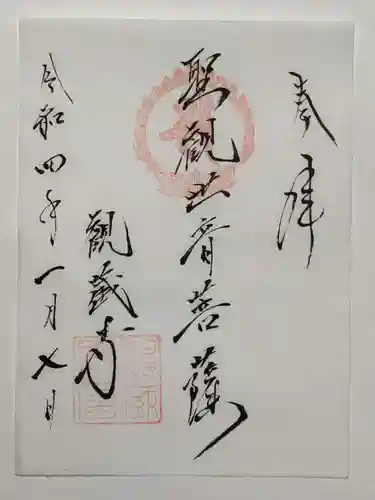 奉拝
聖観世音菩薩
観蔵寺
令和四年一月七日